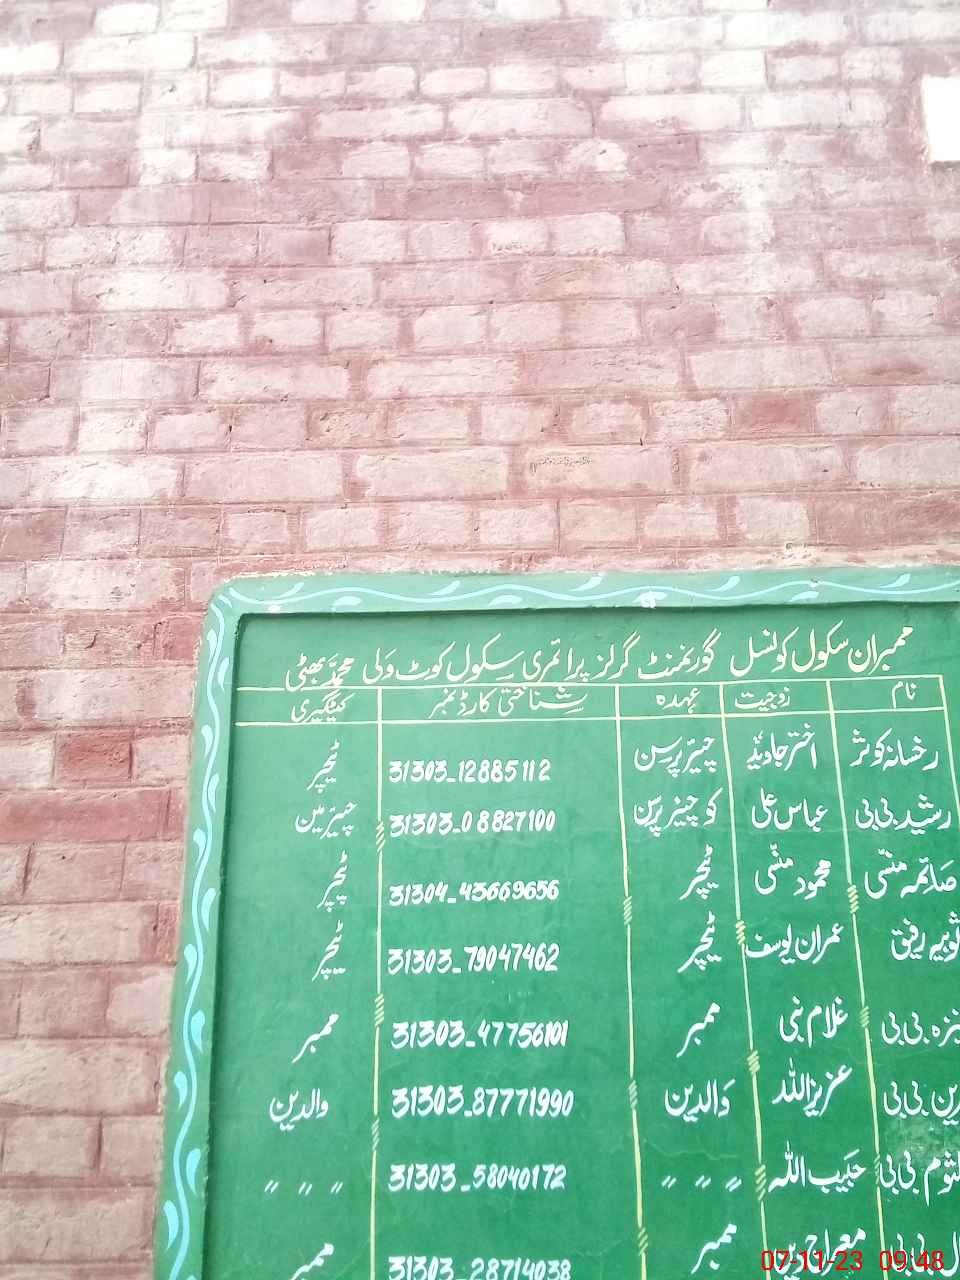 ممبران سکول کونسل گورنمنٹ گرلز پرائمری سکول کوٹ ولی محمد بھٹی
نام زوجیت عہدہ شناختی کارڈ نمبر کیٹگیری
رخسانہ کوثر اختر جاوید چیئرپرسن 31303-12885112 ٹیچر
رشید بی بی عباس علی کو چیئرپرسن 31303-08827100 چیئرمین
صائمہ منشی محمود منشی ٹیچر 31304-43669656 ٹیچر
ثوبیہ رفیق عمران یوسف ٹیچر 31303-79047462 ٹیچر
بی بی غلام نبی ممبر 31303-47756101 ممبر
بی بی عزیز اللہ والدین 31303-87771990 والدین
بی بی حبیب اللہ 〃 〃 〃 31303-58040172 〃 〃 〃
بی بی معراج دین ممبر 31303-28714038 ممبر
07-11-23 09:48